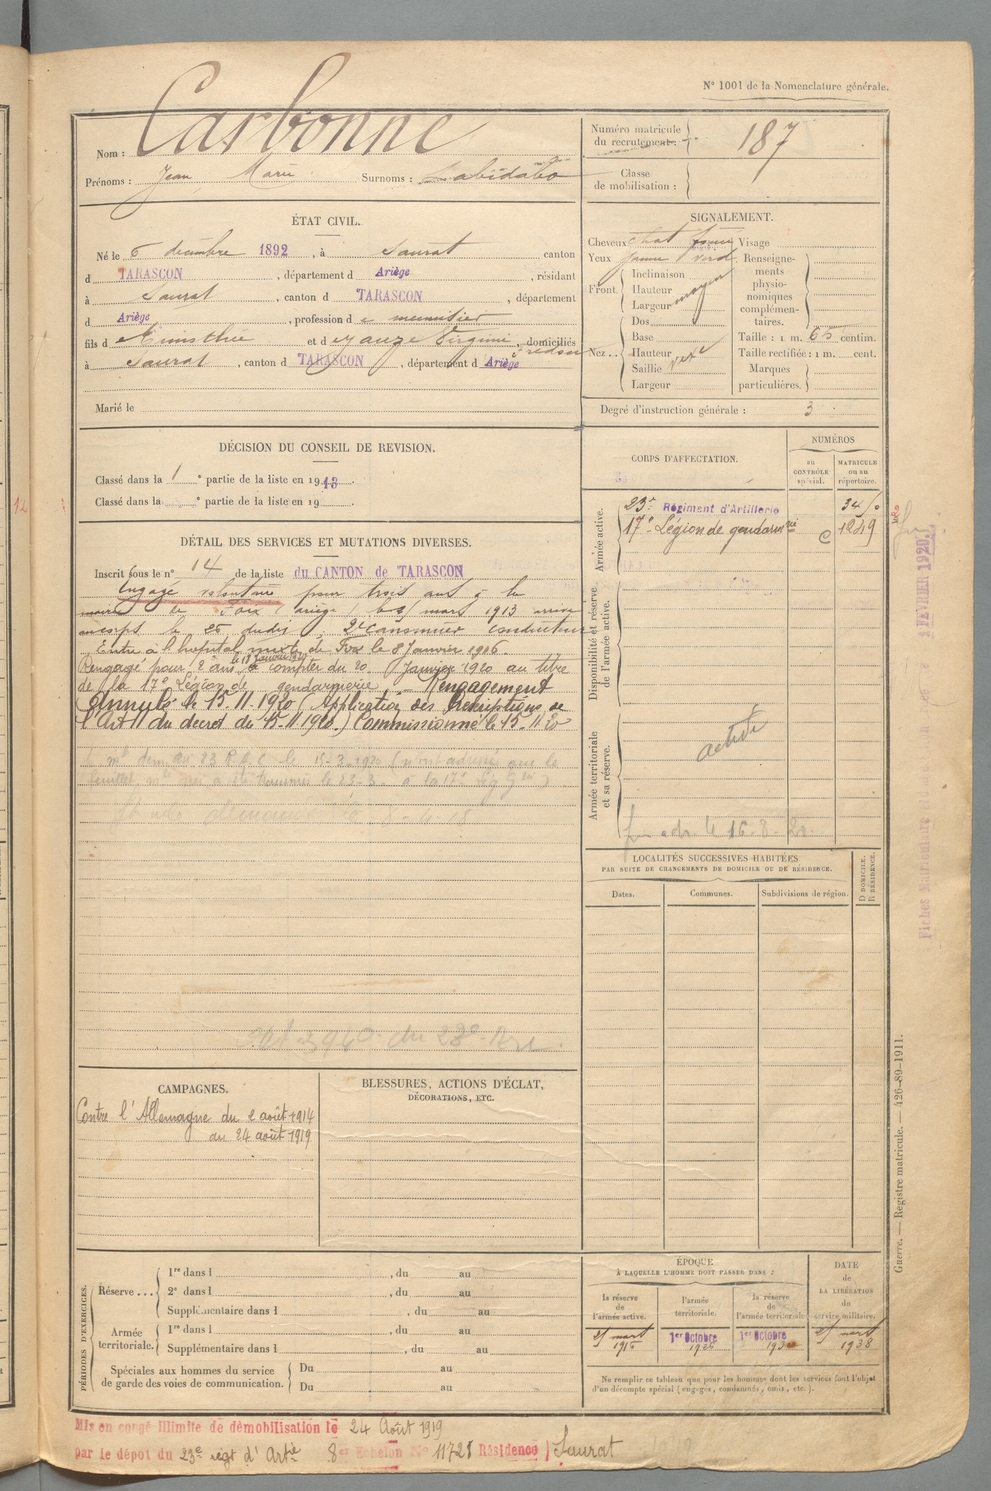 N° 1001 de la Nomenclature générale.
Nom : Carbonne
Prénoms : Jean Marie Surnoms :
Numéro matricule du recrutement : 187
Classe de mobilisation :
ÉTAT CIVIL.
Né le 6 décembre 1892, à Saurat canton
d TARASCON, département d Ariège, résidant
à Saurat, canton d TARASCON, département
d Ariège, profession d e menuisier
fils d et d Virginie, domiciliés
à Saurat, canton d TARASCON, département d Ariège
Marié le
SIGNALEMENT.
Cheveux chat Visage
Yeux jaune verd Renseignements physionomiques complémentaires.
Front. Inclinaison
Hauteur moyen
Largeur
Nez.. Dos
Base
Hauteur
Saillie
Largeur
Taille : 1 m. 65 centim.
Taille rectifiée : 1 m. cent.
Marques particulières.
Degré d'instruction générale : 3
DÉCISION DU CONSEIL DE REVISION.
Classé dans la 1re partie de la liste en 1913.
Classé dans la e partie de la liste en 19
DÉTAIL DES SERVICES ET MUTATIONS DIVERSES.
Inscrit sous le n° 14 de la liste du CANTON de TARASCON
Engagé volontaire pour trois ans à la
mairie de Foix (Ariège) le mars 1913 arrivé
au corps le 25 dudit, 2e canonnier conducteur
Entré à l'hôpital mixte de Foix le 8 Janvier 1916.
Rengagé pour 2 ans le 13 janvier 1920 à compter du 20 Janvier 1920 au titre
de la 17e Légion de gendarmerie. Rengagement
Annulé le 15.11.1920 (Application des Prescriptions de
l'Art 11 du decret du 15-11 1920.) Commissionné le 15-11-20
CORPS D'AFFECTATION.
NUMÉROS
au CONTRÔLE spécial.
MATRICULE ou au répertoire.
Armée active.
23e Régiment d'Artillerie
17e Légion de gendarmerie C 1249
Disponibilité et réserve de l'armée active.
Armée territoriale et sa réserve.
activité
LOCALITÉS SUCCESSIVES HABITÉES
PAR SUITE DE CHANGEMENTS DE DOMICILE OU DE RÉSIDENCE.
Dates. Communes. Subdivisions de région. D DOMICILE. R RÉSIDENCE.
CAMPAGNES.
Contre l'Allemagne du 2 août 1914
au 24 août 1919
BLESSURES, ACTIONS D'ÉCLAT,
DÉCORATIONS, ETC.
PÉRIODES D'EXERCICES.
Réserve... 1re dans l , du au
2e dans l , du au
Supplémentaire dans l , du au
Armée territoriale. 1re dans l , du au
Supplémentaire dans l , du au
Spéciales aux hommes du service de garde des voies de communication. Du au
Du au
ÉPOQUE
À LAQUELLE L'HOMME DOIT PASSER DANS :
la réserve de l'armée active.
l'armée territoriale.
la réserve de l'armée territoriale
DATE de LA LIBÉRATION du service militaire.
mars 1916
1er Octobre
1er Octobre
mars 1938
Ne remplir ce tableau que pour les hommes dont les services font l'objet
d'un décompte spécial (engagés, condamnés, omis, etc.)
Guerre. — Registre matricule. — 426-89-1911.
Mis en congé illimité de démobilisation le 24 Août 1919
par le dépôt du 23e regt d'Artie 8e Echelon N° 11728 Résidence Saurat